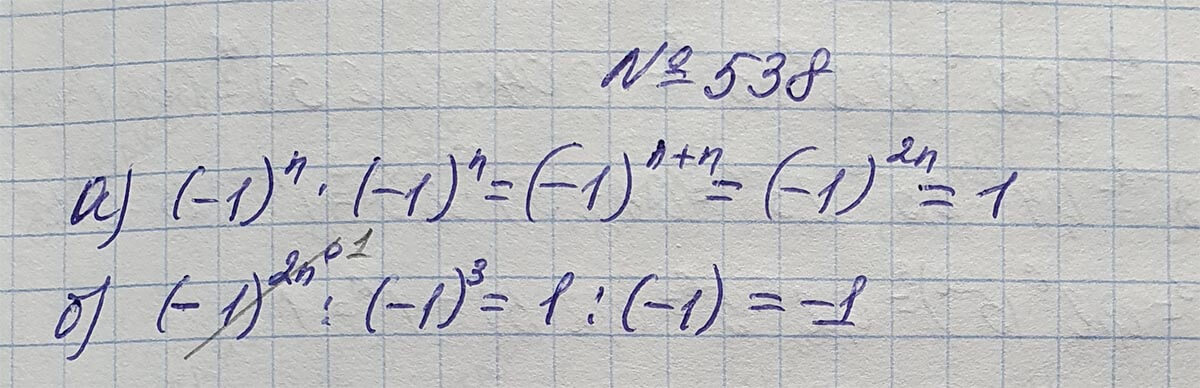 № 538
а) (-1)ⁿ · (-1)ⁿ = (-1)ⁿ⁺ⁿ = (-1)²ⁿ = 1
б) (-1)²ⁿ 1 : (-1)³ = 1 : (-1) = -1